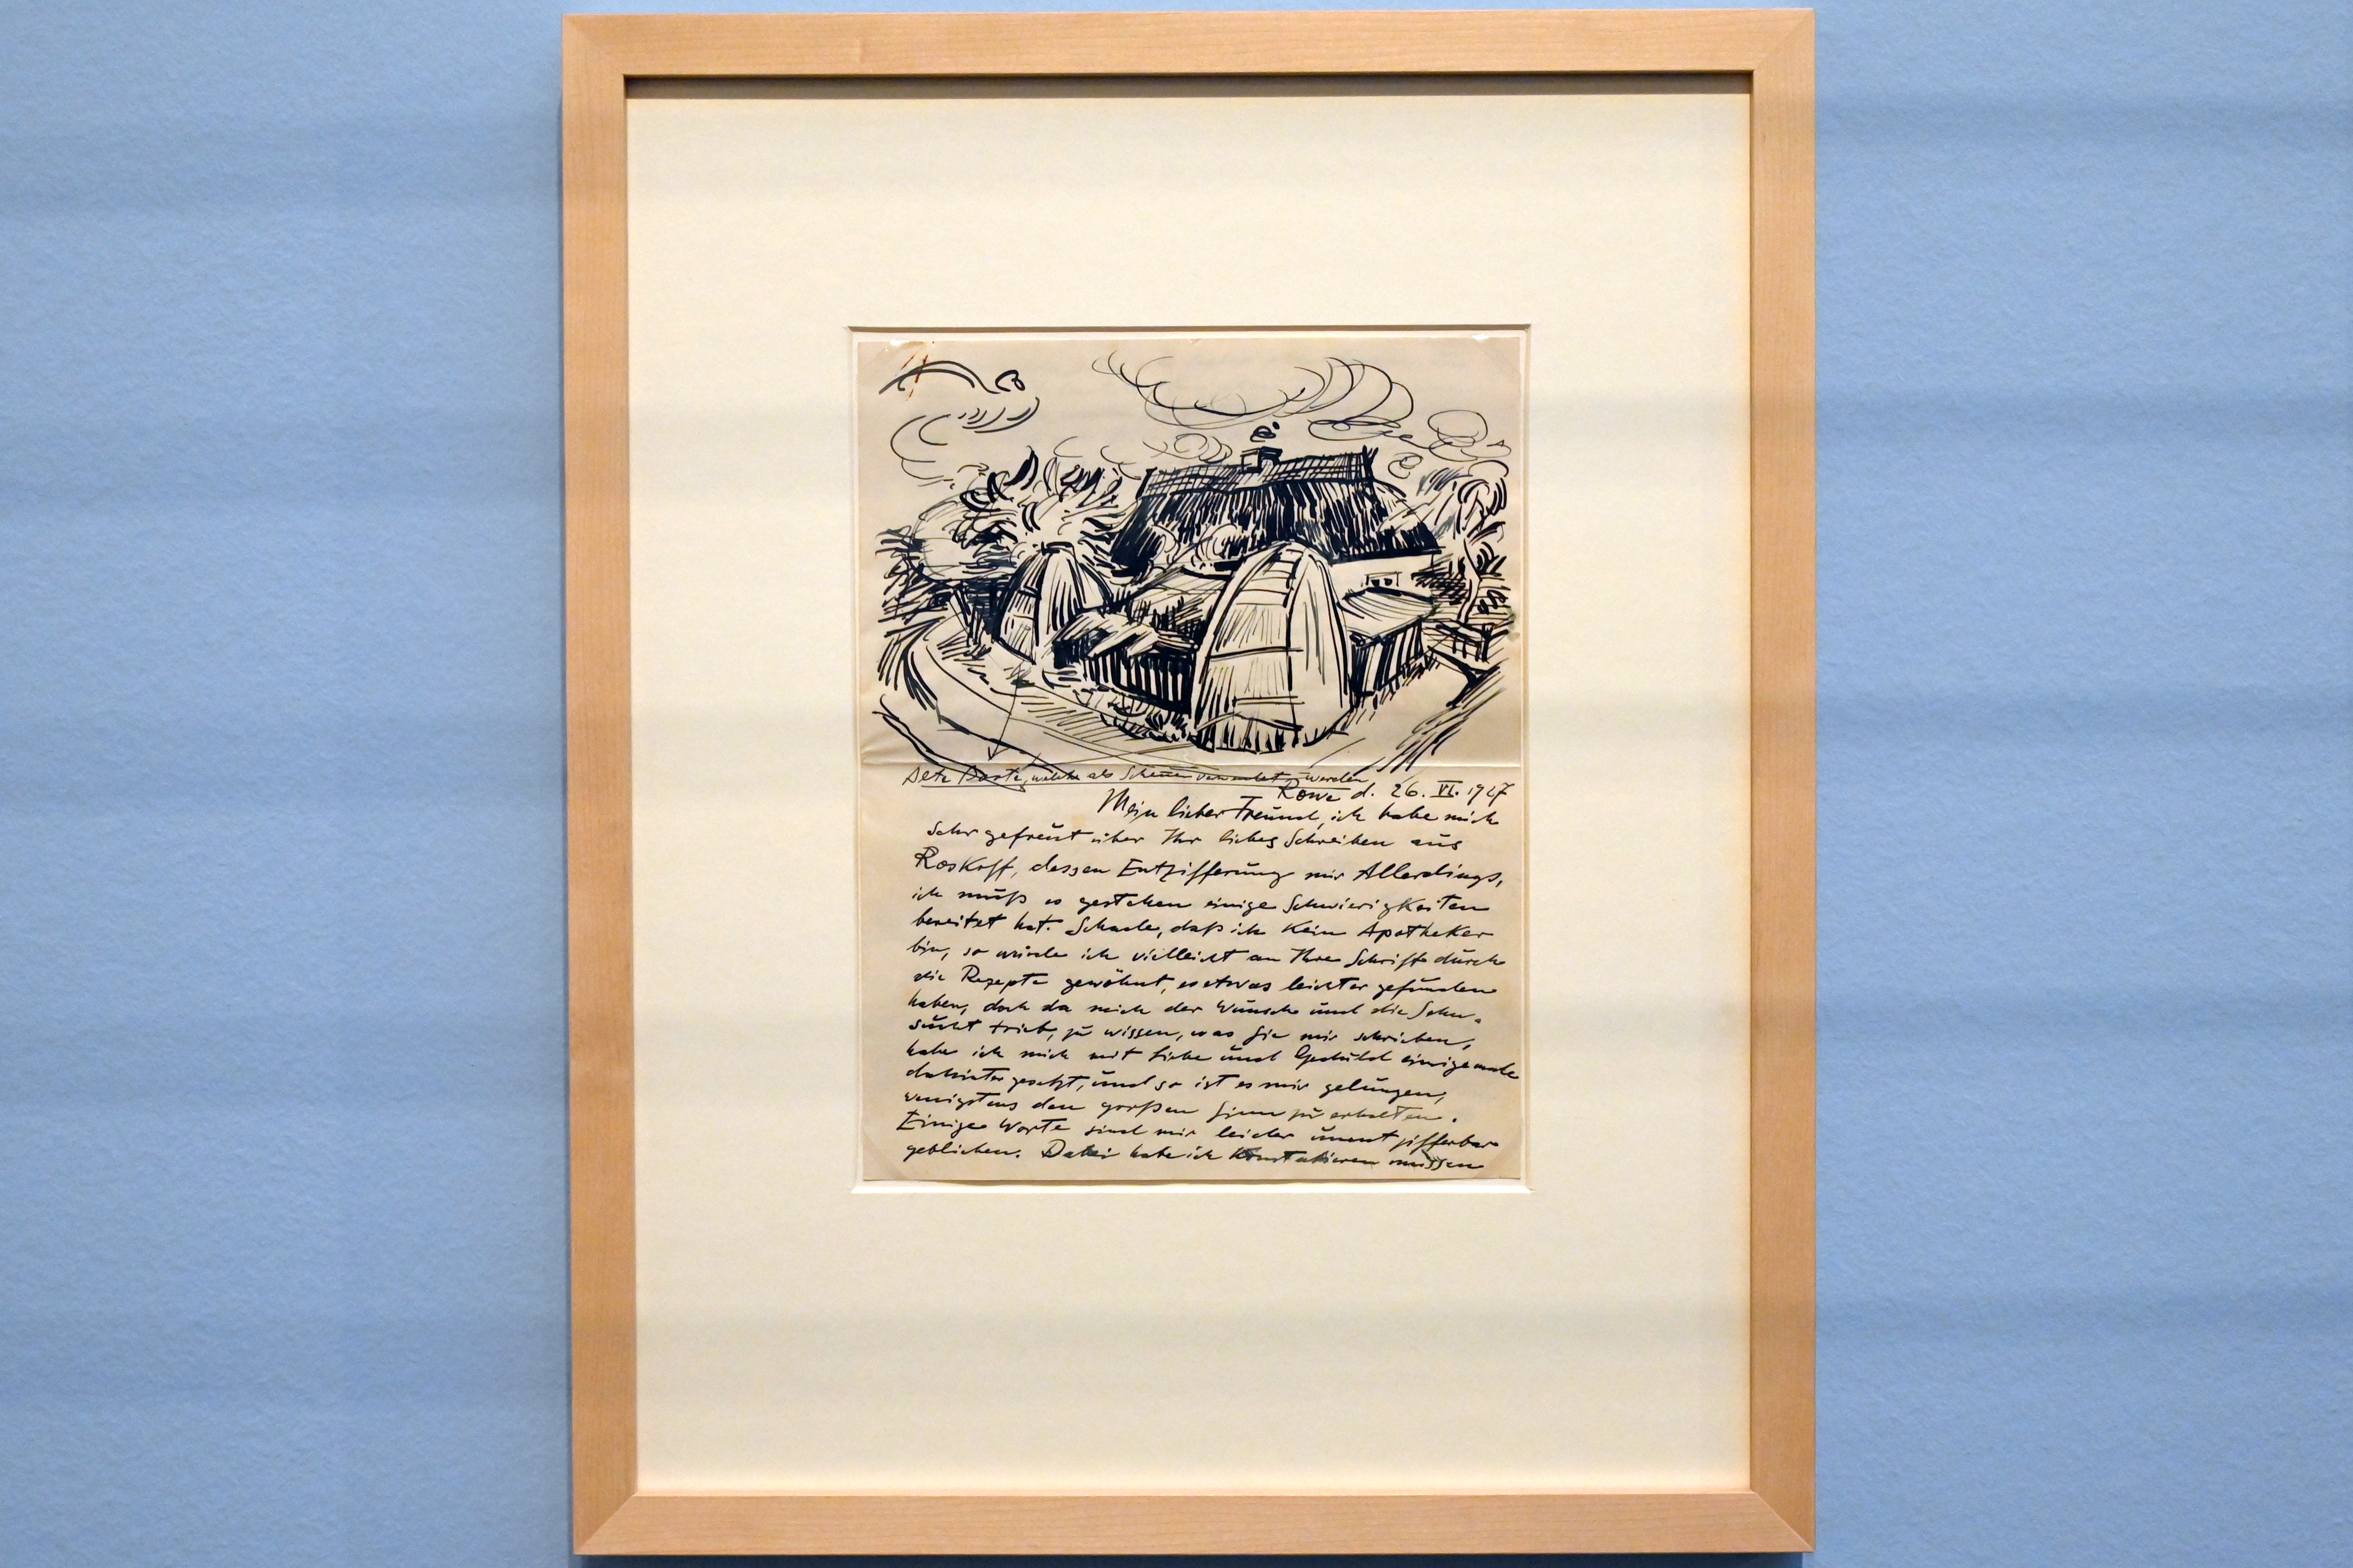 Alte Boote, welche als Scheuen verwendet werden
Rowe d. 26. VI. 1927
Mein lieber Freund, ich habe mich
sehr gefreut über Ihr liebes Schreiben aus
Roskoff, dessen Entzifferung mir Allerdings,
ich muß es gestehen einige Schwierigkeiten
bereitet hat. Schade, daß ich Kein Apotheker
bin, so würde ich vielleicht an Ihre Schrift durch
die Rezepte gewöhnt, es etwas leichter gefunden
haben, doch da mich der Wunsch und die Sehn-
sucht trieb, zu wissen, was Sie mir schrieben,
habe ich mich mit Liebe und Geduld einigemale
dahinter gesetzt, und so ist es mir gelungen,
wenigstens den großen Sinn zu erhalten.
Einige Worte sind mir leider unentzifferbar
geblieben. Dabei habe ich Konstatieren müssen